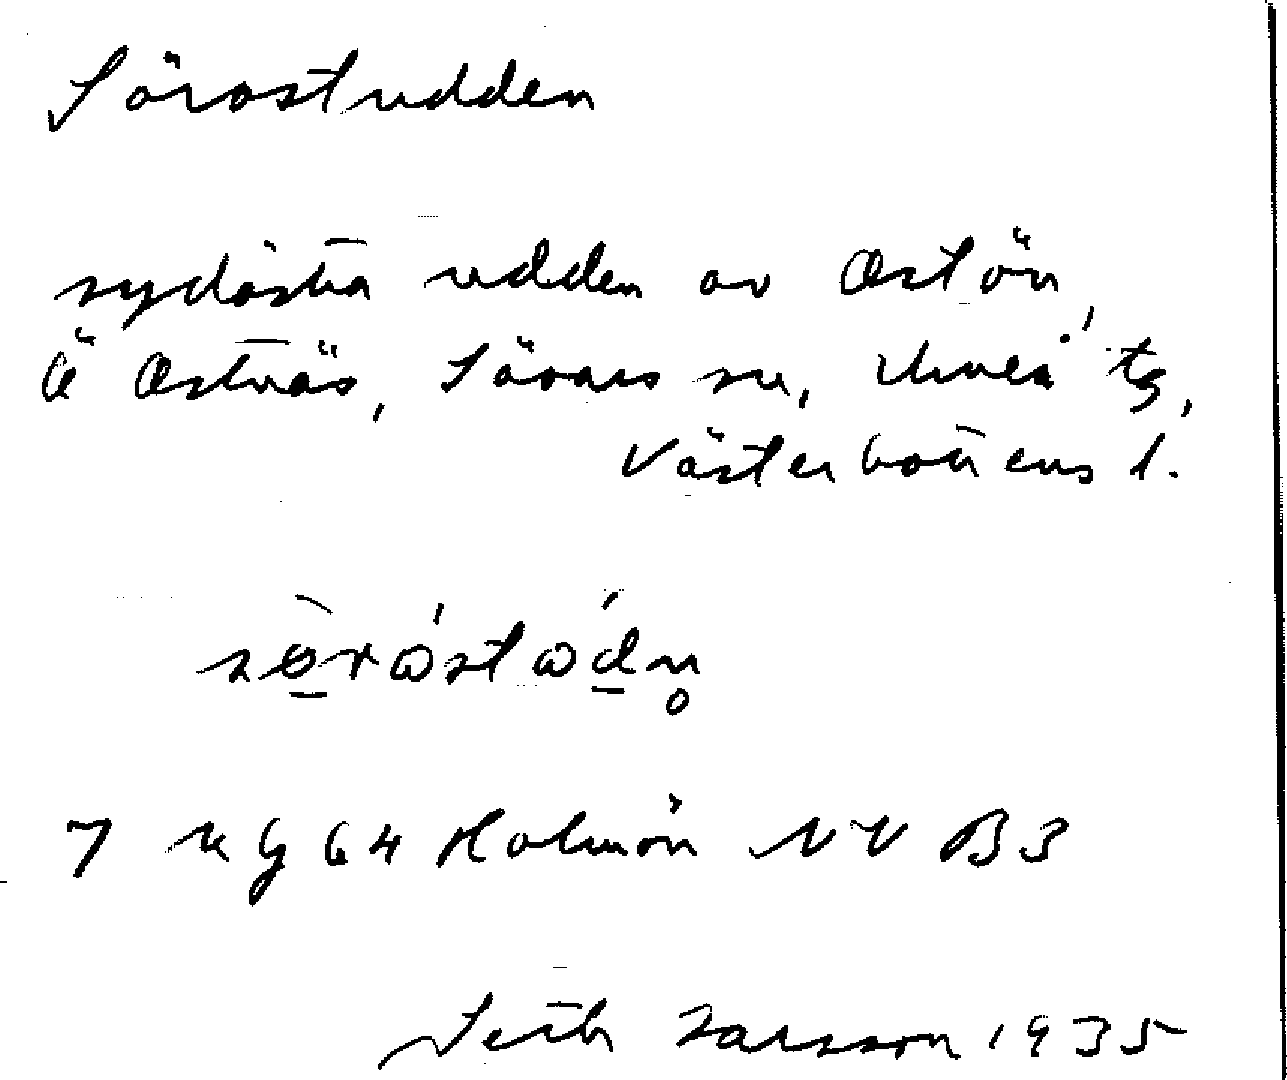 Sörostudden
sydöstra udden av Ostön,
Ö Ostnäs, Sävars sn, Umeå tg,
Västerbottens l.
7 ng 64 Holmön NV B3
Seth Larsson 1935